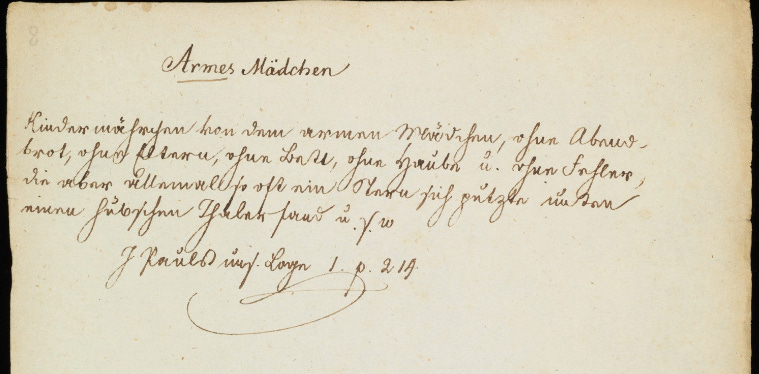 8
Armes Mädchen
Kindermährchen von dem armen Mädchen, ohne Abend-
brot, ohne Eltern, ohne Bett, ohne Haube u. ohne Fehler,
die aber allemall so oft ein Stern sich putzte unten
einen hübschen Thaler fand u. s. w
J Pauls uns. Loge 1. p. 214